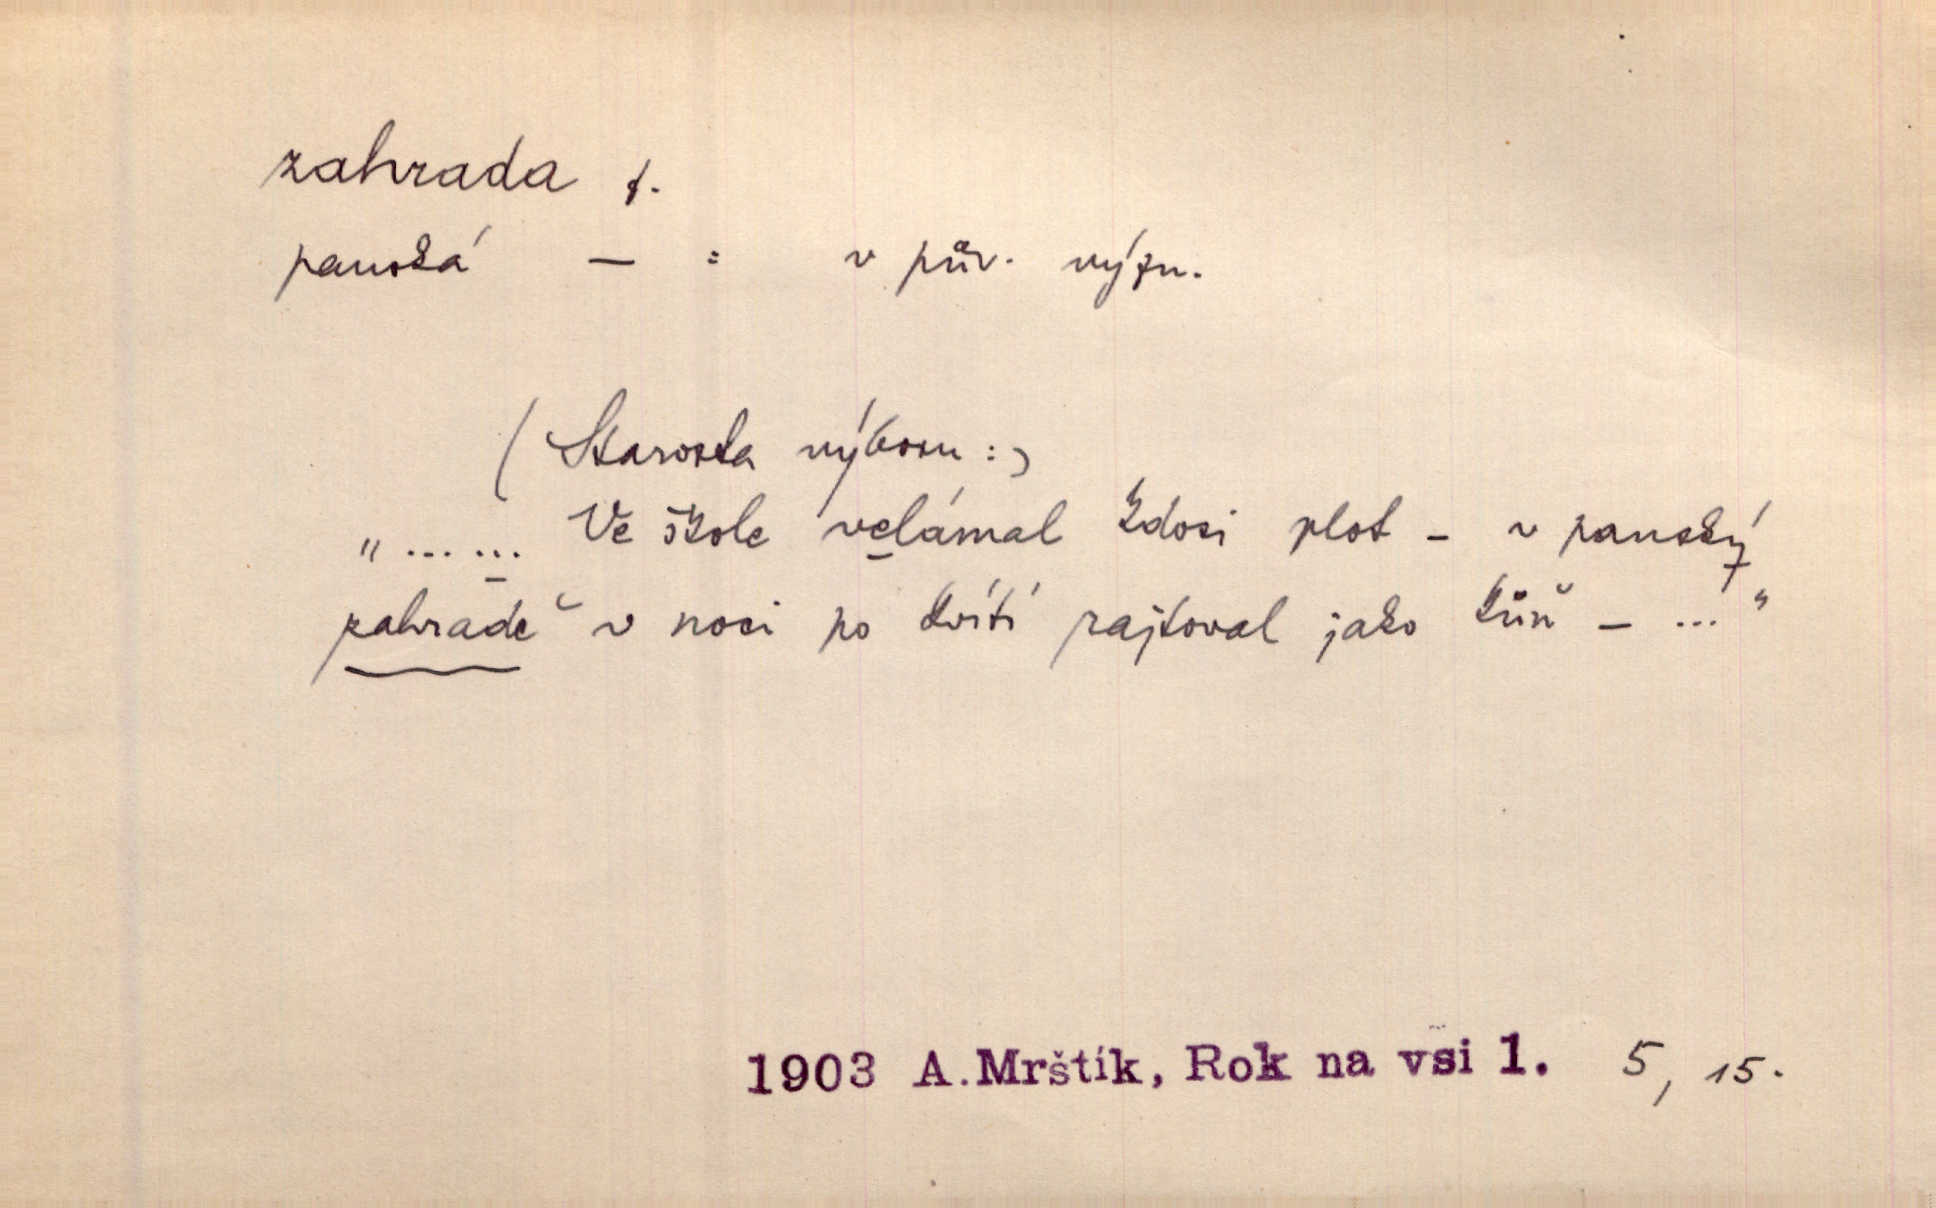 zahrada f.
panská — = v pův. význ.
(Starosta výboru:)
„...... Ve škole velámal kdosi plot – v panský
zahradě v noci po kvítí rajtoval jako kůň – ..."
1903 A.Mrštík, Rok na vsi 1. 5, 15.